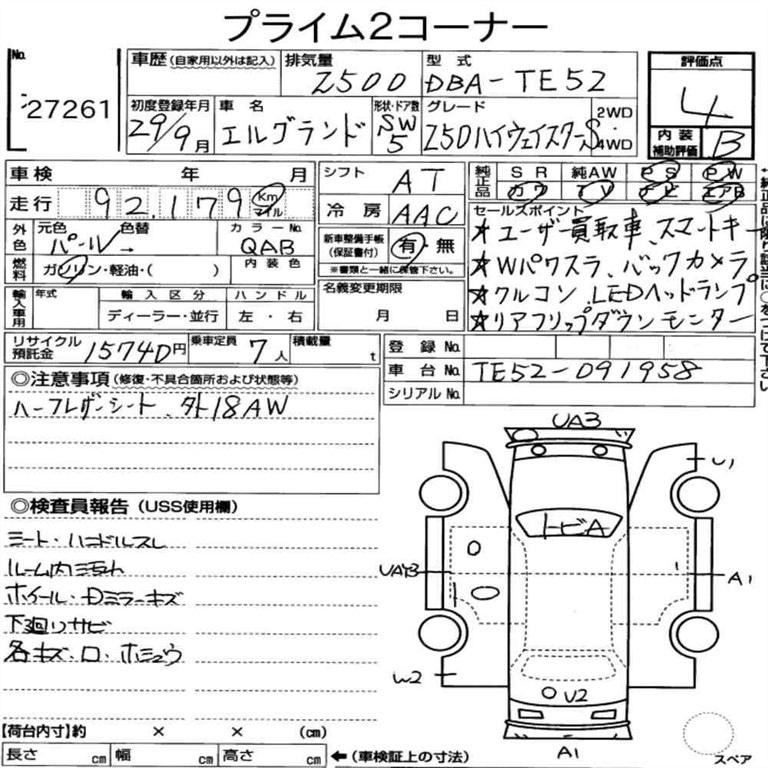 プライム2コーナー
No. 27261
車歴 (自家用以外は記入)
排気量 2500
型式 DBA-TE52
評価点 4
初度登録年月 29年9月
車名 エルグランド
形状・ドア数 SW 5
グレード 250ハイウェイスターS
2WD
4WD
内装補助評価 B
車検 年 月
シフト AT
純正品 SR 純AW PS PW
カワ TV ナビ エアB
走行 92,179 Km マイル
冷房 AAC
外色 元色 パール→ 色替
カラーNo. QAB
燃料 ガソリン・軽油・( )
内装色
新車整備手帳(保証書付) 有・無
※書類と一緒に保管下さい。
セールスポイント
★ユーザー買取車、スマートキー
★Wパワスラ、バックカメラ
★クルコン LEDヘッドランプ
★リアフリップダウンモニター
輸入車用 年式 輸入区分 ハンドル
ディーラー・並行 左・右
名義変更期限
月 日
リサイクル預託金 15740円
乗車定員 7人
積載量 t
登録No.
車台No. TE52-091958
シリアルNo.
◎注意事項 (修復・不具合箇所および状態等)
ハーフレザーシート、社外18AW
◎検査員報告 (USS使用欄)
シート・ハンドルスレ
ルーム内汚れ
ホイール・Dミラーキズ
下廻りサビ
各キズ・凹・ホシュウ
UA3
U1
トビA
A1
W2
U2
A1
スペア
【荷台内寸】約 × × (cm)
長さ cm 幅 cm 高さ cm ←(車検証上の寸法)